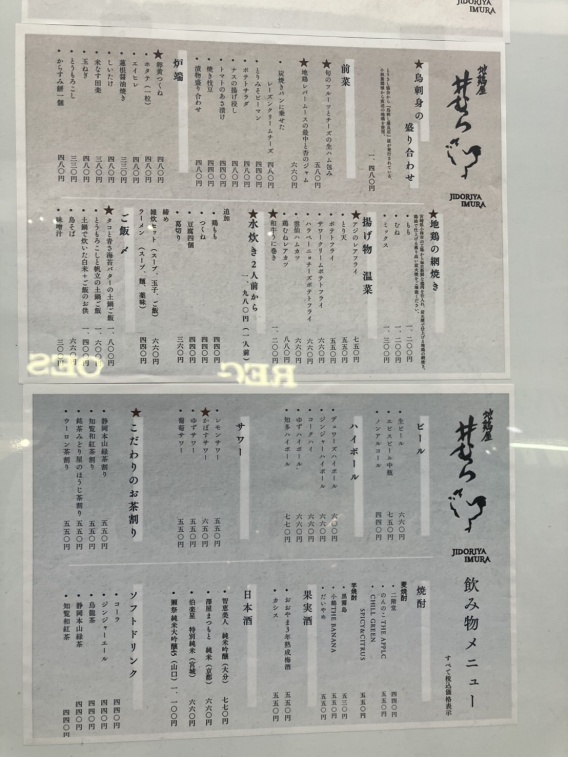 JIDORIYA
IMURA
地鶏屋
井むら
JIDORIYA
IMURA
★鳥刺身の
盛り合わせ
一、四八〇円
前菜
★旬のフルーツとチーズの生ハム包み
五八〇円
★地鶏レバームースの最中と杏のジャム
六六〇円
・炭焼きパンに乗せた
レーズンクリームチーズ
四八〇円
・とりみそピーマン
四四〇円
・ポテトサラダ
四八〇円
・ナスの揚げ浸し
・トマトのあさ漬け
・焼き枝豆
・漬物盛り合わせ
炉端
★卵黄つくね 四八〇円
・ホタテ（一粒）
・エイヒレ
・蓮根醤油焼き
・しいたけ
・米なす田楽
・玉ねぎ
・とうもろこし
・からすみ餅一個 四八〇円
★地鶏の網焼き
・もも 一、二〇〇円
・むね 一、二〇〇円
・ミックス 一、三〇〇円
揚げ物 温菜
★アジのレアフライ 七五〇円
・とり天 五五〇円
・ポテトフライ 五五〇円
・サワークリームポテトフライ 六六〇円
・ハラペーニョチーズポテトフライ 六六〇円
・雲仙ハムカツ 六六〇円
・鶏むねレアカツ 八八〇円
★和牛うに巻き 一、二〇〇円
★水炊き２人前から
一、九八〇円（一人前）
追加
・鶏もも 四四〇円
・つくね 四四〇円
・豆腐四個
・葛切り 三六〇円
締め
雑炊セット（スープ、玉子、ご飯） 六六〇円
ラーメン （スープ、麺、薬味） 四四〇円
ご飯〆
★タコと青さ海苔バターの土鍋ご飯 一、八〇〇円
・とうもろこしと帆立の土鍋ご飯 一、六〇〇円
・土鍋で炊いた白米＋ご飯のお供 一、四〇〇円
・鳥そば 六六〇円
・味噌汁 三〇〇円
地鶏屋
井むら
JIDORIYA
IMURA
飲み物メニュー
すべて税込価格表示
ビール
・生ビール 六六〇円
・エビスビール中瓶
・ノンアルコール 四四〇円
ハイボール
・デュワーズハイボール 六六〇円
・ジンジャーハイボール 六六〇円
・コークハイ 六六〇円
・ゆずハイボール 六六〇円
・知多ハイボール 七七〇円
サワー
・レモンサワー 五五〇円
★かぼすサワー 六五〇円
・ゆずサワー 五五〇円
・葡萄サワー 五五〇円
★こだわりのお茶割り
・静岡本山緑茶割り 五五〇円
・知覧和紅茶割り 五五〇円
・銘茶みとり屋のほうじ茶割り 五五〇円
・ウーロン茶割り 五五〇円
焼酎
麦焼酎
・二階堂 四四〇円
・のんの・THE APPLC 五五〇円
・CHILL GREEN
SPICY&CITRUS 五五〇円
芋焼酎
・黒霧島 五三〇円
・小鶴THE BANANA 五五〇円
・だいやめ 五五〇円
果実酒
・おおやま３年熟成梅酒 五五〇円
・カシス 五五〇円
日本酒
・智恵美人 純米吟醸（大分） 七七〇円
・澤屋まつもと 純米（京都） 六六〇円
・伯楽星 特別純米（宮城） 六六〇円
・獺祭 純米大吟醸45（山口） 一、一〇〇円
ソフトドリンク
・コーラ 四四〇円
・ジンジャーエール 四四〇円
・静岡本山緑茶 四四〇円
・烏龍茶 四四〇円
・知覧和紅茶 四四〇円